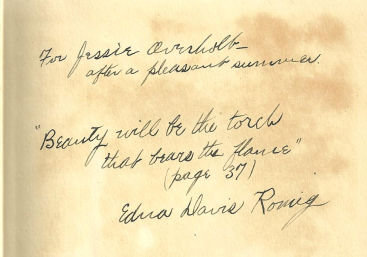 For Jessie Overholt—
after a pleasant summer.
"Beauty will be the torch
that bears the flame"
(page 37)
Edna Davis Romig